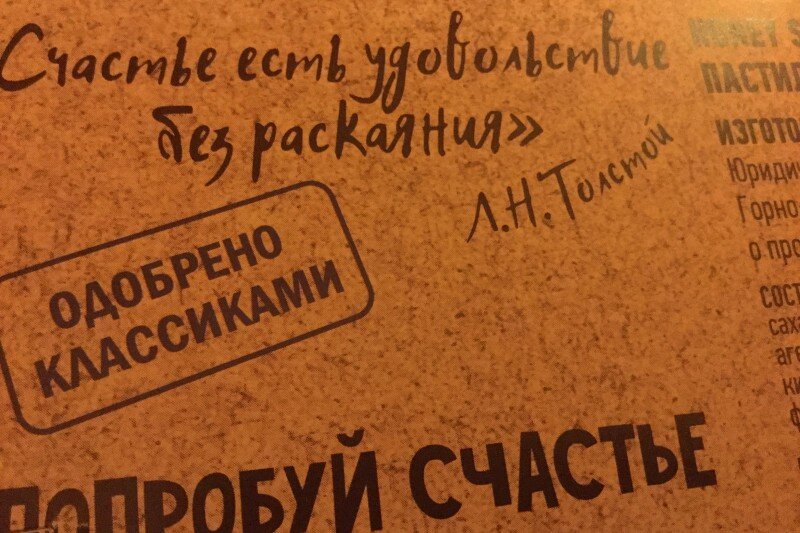 Счастье есть удовольствие
без раскаяния»
Л.Н.Толстой
ОДОБРЕНО
КЛАССИКАМИ
ПОПРОБУЙ СЧАСТЬЕ
ПАСТИЛ
ИЗГОТО
Юридич
Горно
о про
СОСТ
сах